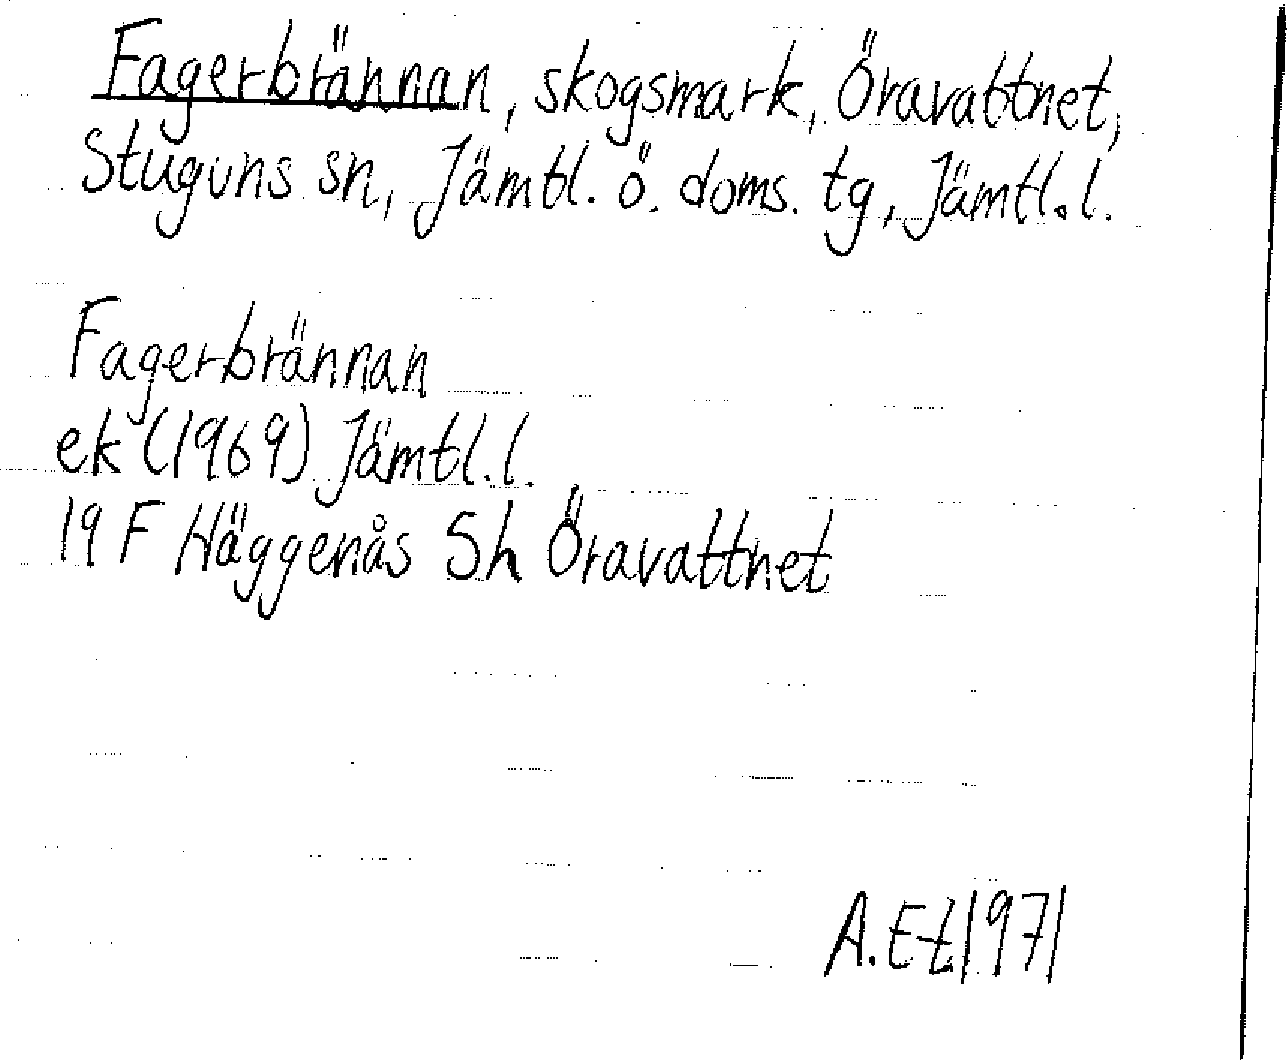 Fagerbrännan, skogsmark, Öravattnet,
Stuguns sn, Jämtl. ö. doms. tg, Jämtl. l.
Fagerbrännan
ek (1969) Jämtl. l.
19 F Häggenås 5h Öravattnet
A. Et 1971